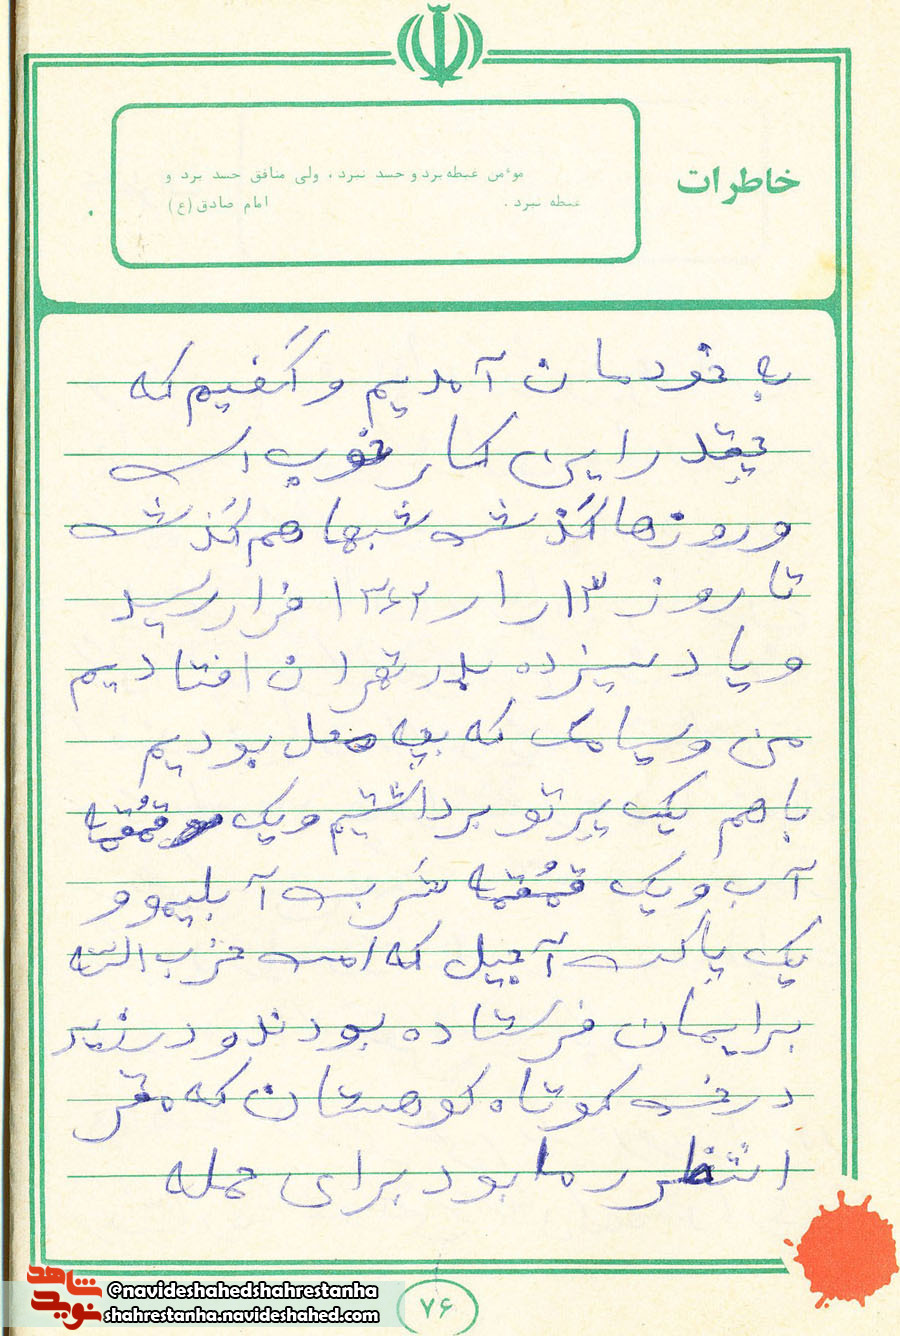 خاطرات
موءمن غبطه برد و حسد نبرد، ولی منافق حسد برد و
غبطه نبرد. امام صادق(ع)
به خودمان آمدیم و گفیم که
چقدر این کار خوب است
و روزها گذشت شبها هم گذشت
تا روز ۱۳ر۱ر۱۳۶۲ فرا رسید
و یاد سیزده بدر تهران افتادیم
من و سیامک که بچه محل بودیم
باهم یک پرتو برداشتیم و یک قمقمه
آب و یک قمقمه شربت آبلیمو و
یک پاکت آجیل که امت حزب الله
برایمان فرستاده بودند و در زیر
درخت کوتاه کوهستان که مقر
انتظار ما بود برای حمله
۷۶
شاهد
نوید
©navideshahedshahrestanha
shahrestanha.navideshahed.com